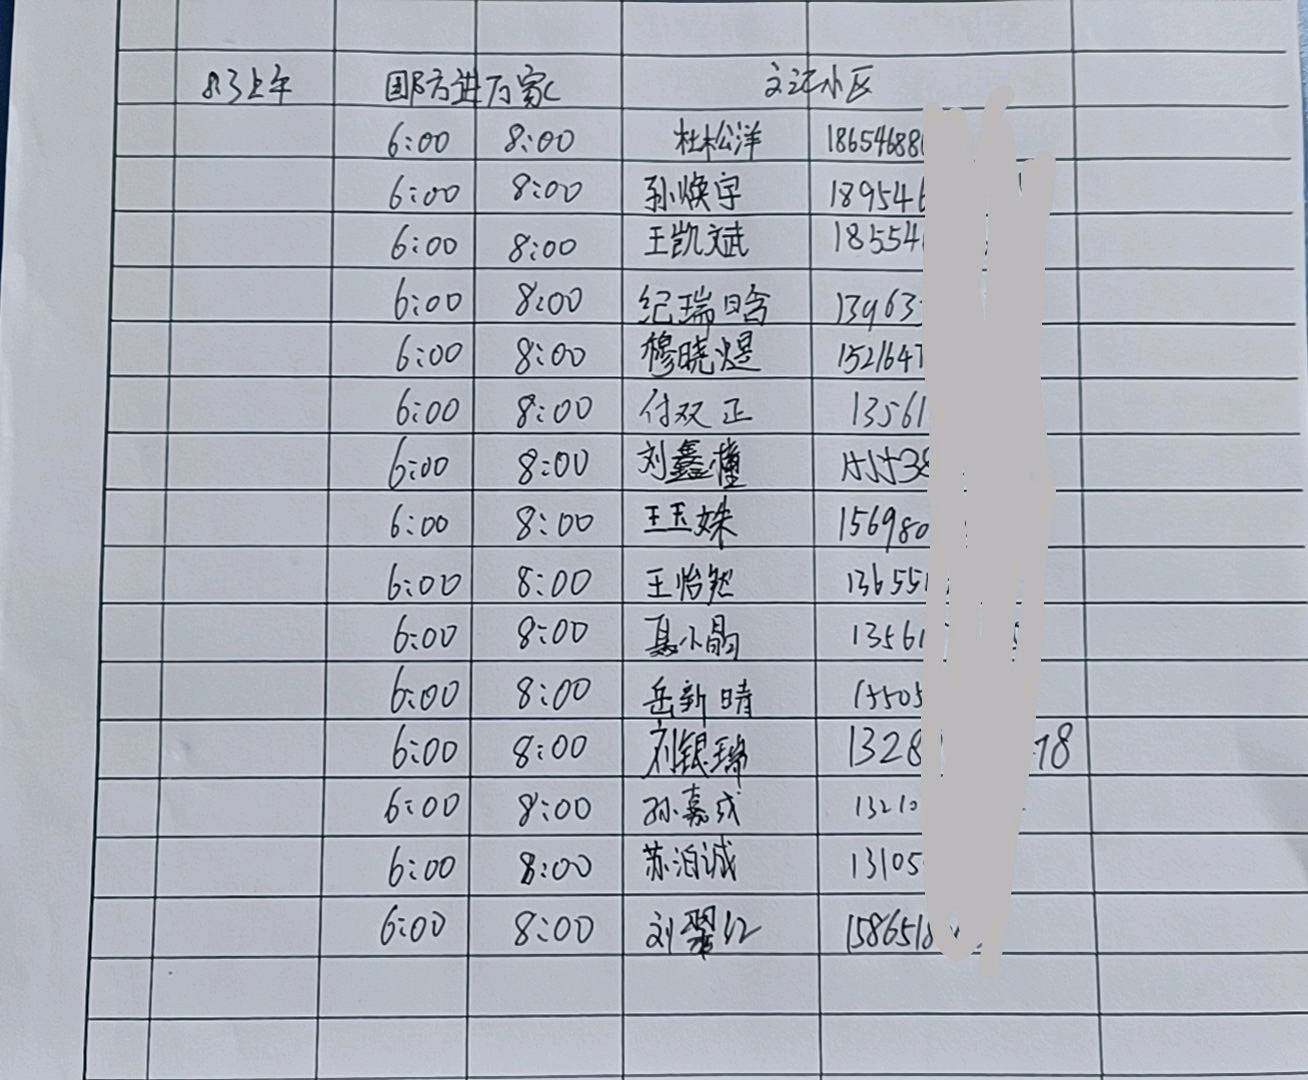 8.3上午 国防进万家 文汇小区
6:00 8:00 杜松洋 18654688
6:00 8:00 孙焕宇 189546
6:00 8:00 王凯斌 18554
6:00 8:00 纪瑞晗 13963
6:00 8:00 穆晓煜 1521647
6:00 8:00 付双正 13561
6:00 8:00 刘鑫橦 155538
6:00 8:00 王玉姝 156980
6:00 8:00 王怡然 136555
6:00 8:00 聂小晶 13561
6:00 8:00 岳新晴 15505
6:00 8:00 刘银瑞 1328 78
6:00 8:00 孙嘉成 13210
6:00 8:00 苏泊诚 13105
6:00 8:00 刘翠红 1586518